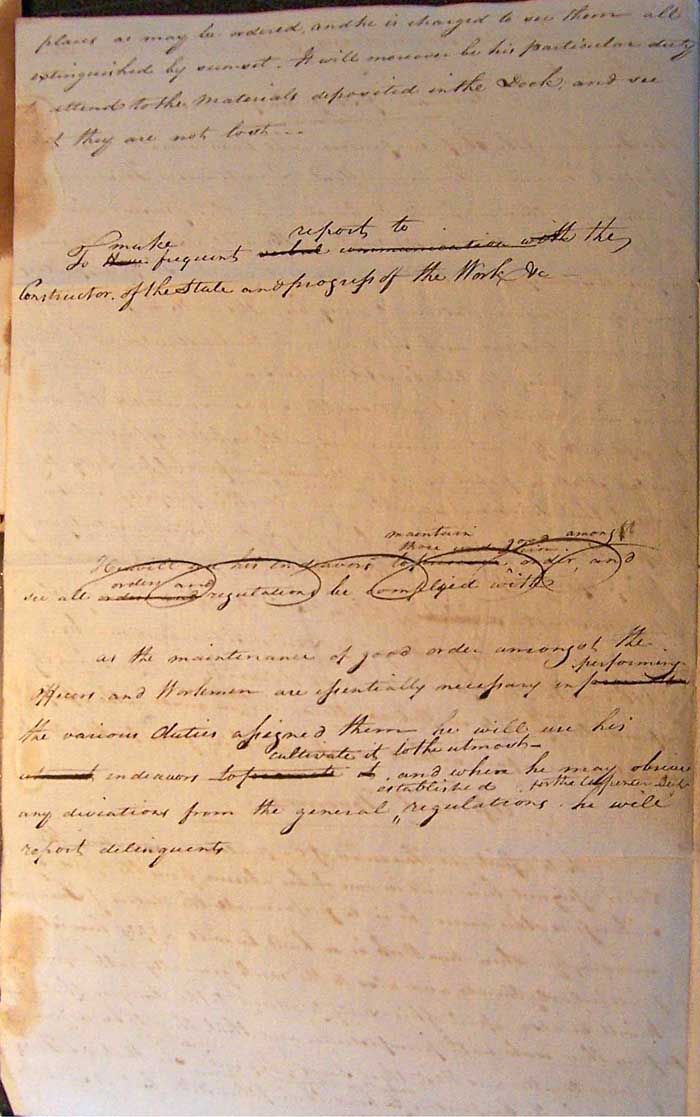 places as may be ordered, and he is charged to see them all
extinguished by sunset. It will moreover be his particular duty
attend to the Materials deposited in the Dock, and see
they are not lost --
make report to
To frequent verbal communication with the
Constructor, of the State and progress of the Work &c
maintain
good amongst
He will use his endeavors to order, and
orders and
see all orders and regulations be complyed with
as the maintenance of good order amongst the
performing
officers and Workmen are essentially necessary in
the various duties assigned them he will use his
cultivate it to the utmost -
utmost endeavors to promote it, and when he may observe
established for the Carpenter Dept
any diviations from the general " regulations he will
report delinquents